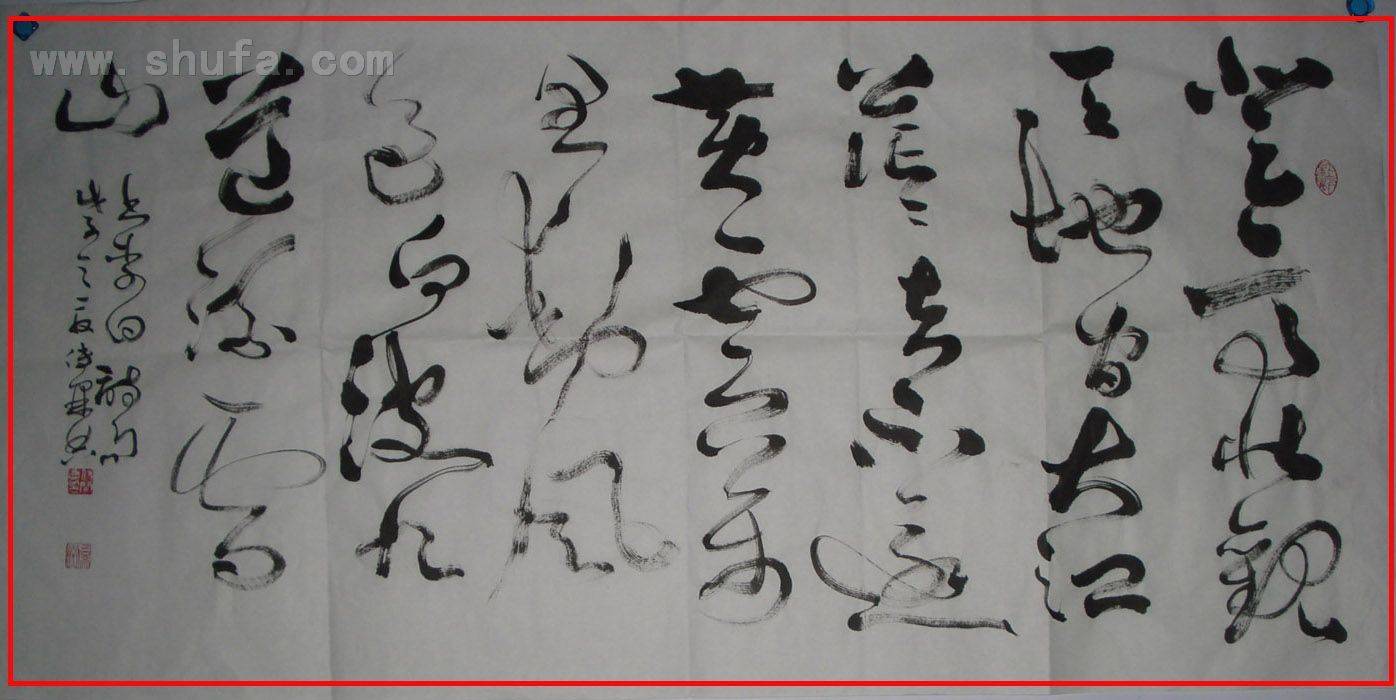 www.shufa.com
登高壮觀
天地间大江
茫々去不還
黄雲萬
里動風
色白波九
道流雪
山
李白詩